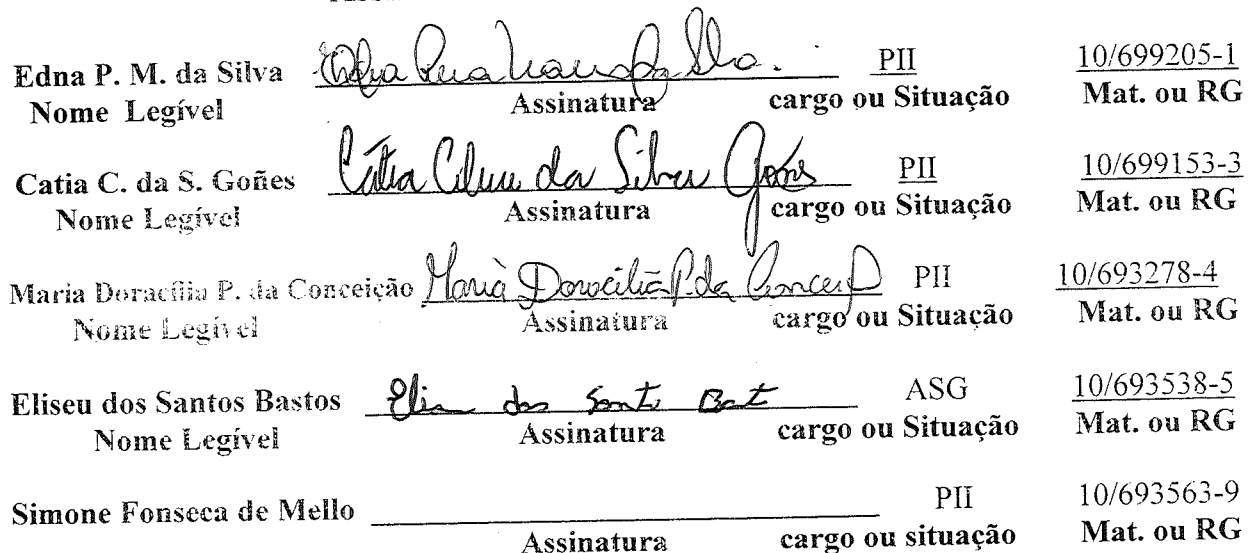 Edna P. M. da Silva da Silva. PII 10/699205-1
Nome Legível Assinatura cargo ou Situação Mat. ou RG
Catia C. da S. Goñes Cátia da Silva PII 10/699153-3
Nome Legível Assinatura cargo ou Situação Mat. ou RG
Maria Doracília P. da Conceição Maria Doracilia P. da PII 10/693278-4
Nome Legível Assinatura cargo ou Situação Mat. ou RG
Eliseu dos Santos Bastos dos ASG 10/693538-5
Nome Legível Assinatura cargo ou Situação Mat. ou RG
Simone Fonseca de Mello PII 10/693563-9
Assinatura cargo ou situação Mat. ou RG